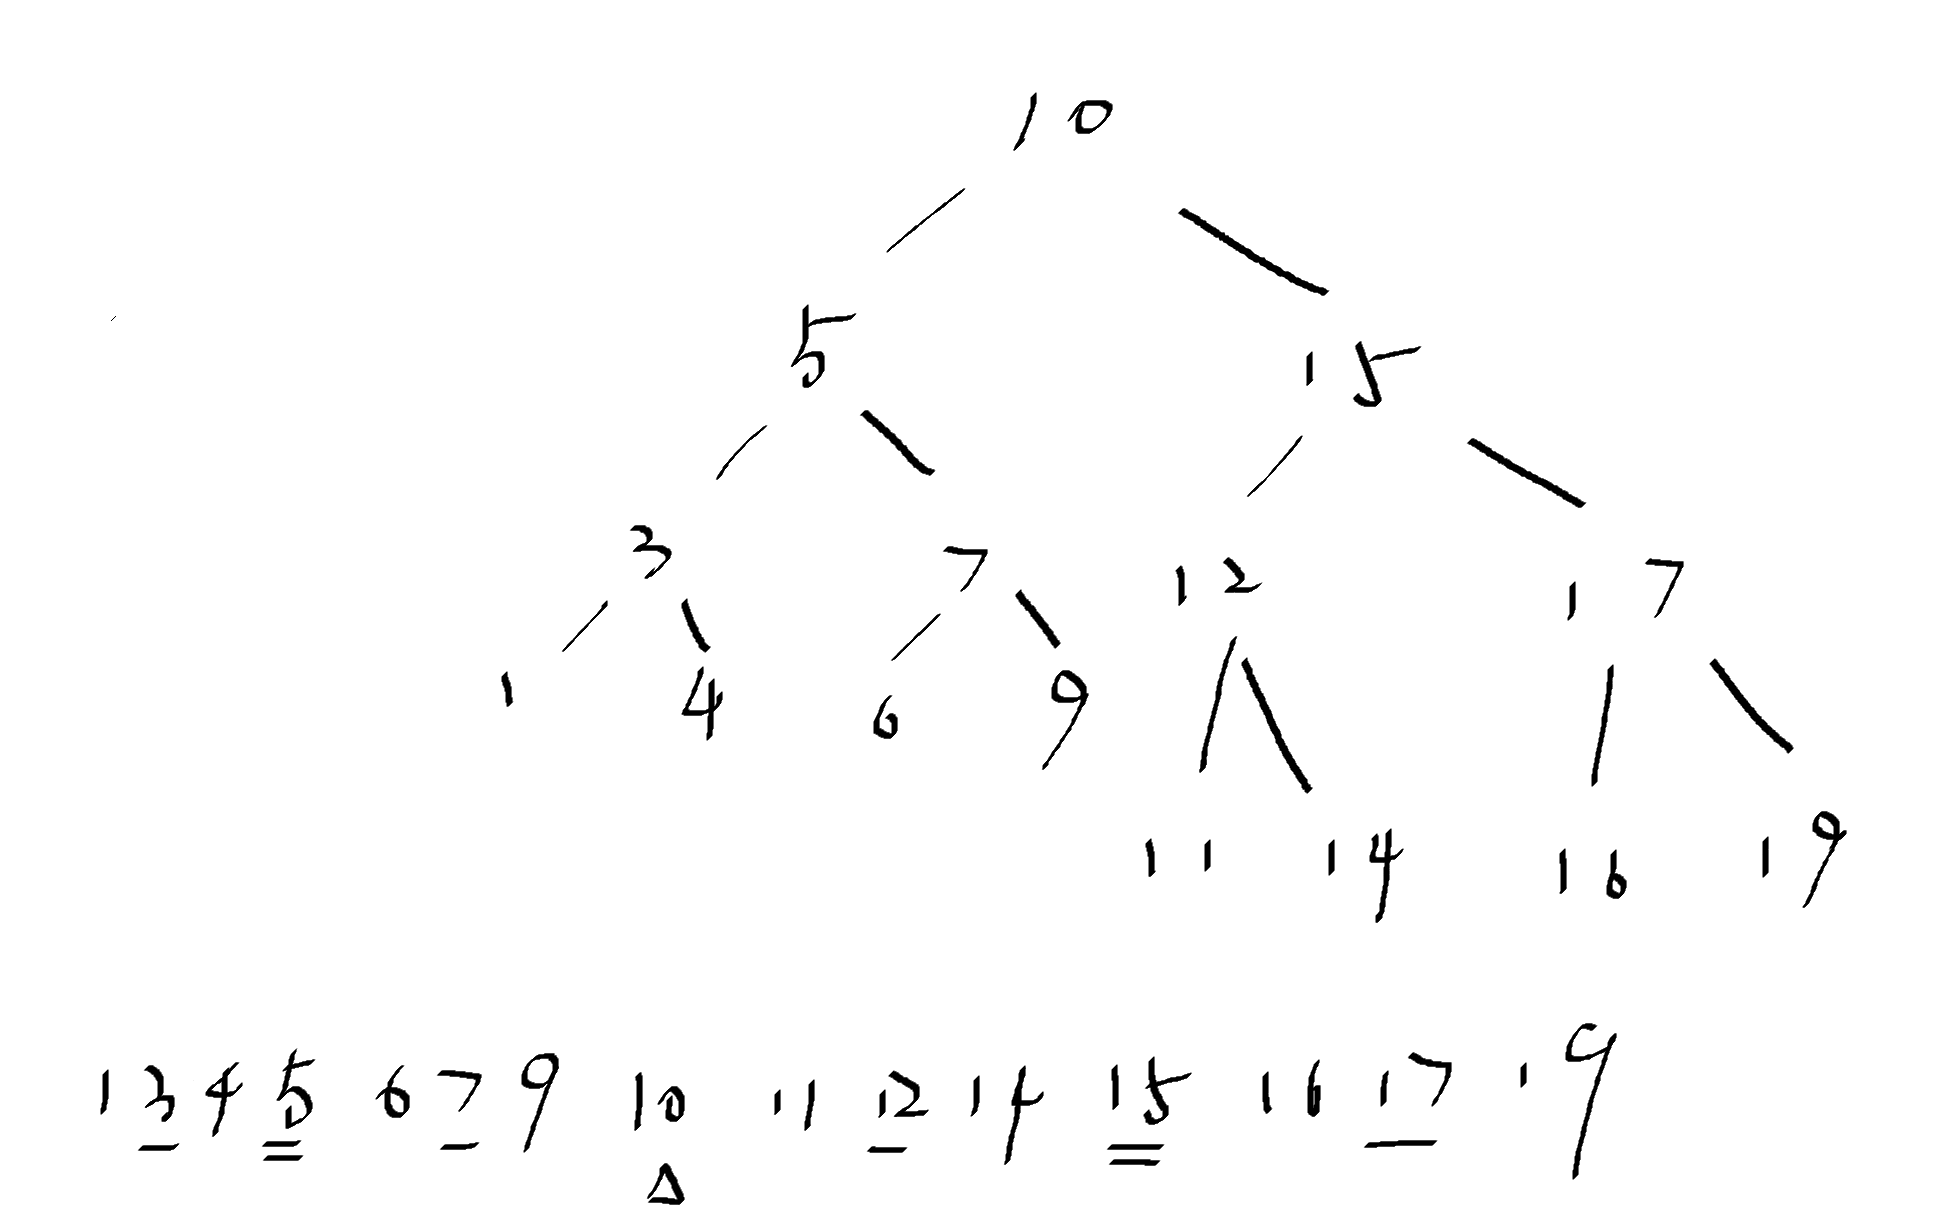 10
5 15
3 7 12 17
1 4 6 9
11 14 16 19
1 3 4 5 6 7 9 10 11 12 14 15 16 17 19